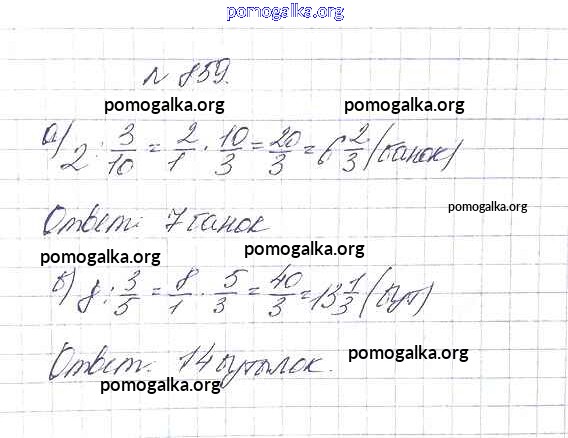 pomogalka.org
№ 859.
pomogalka.org pomogalka.org
а) 2 : 3/10 = 2/1 · 10/3 = 20/3 = 6 2/3 (банок)
pomogalka.org
Ответ: 7 банок
pomogalka.org pomogalka.org
б) 8 : 3/5 = 8/1 · 5/3 = 40/3 = 13 1/3 (бут)
pomogalka.org
Ответ: 14 бутылок.
pomogalka.org